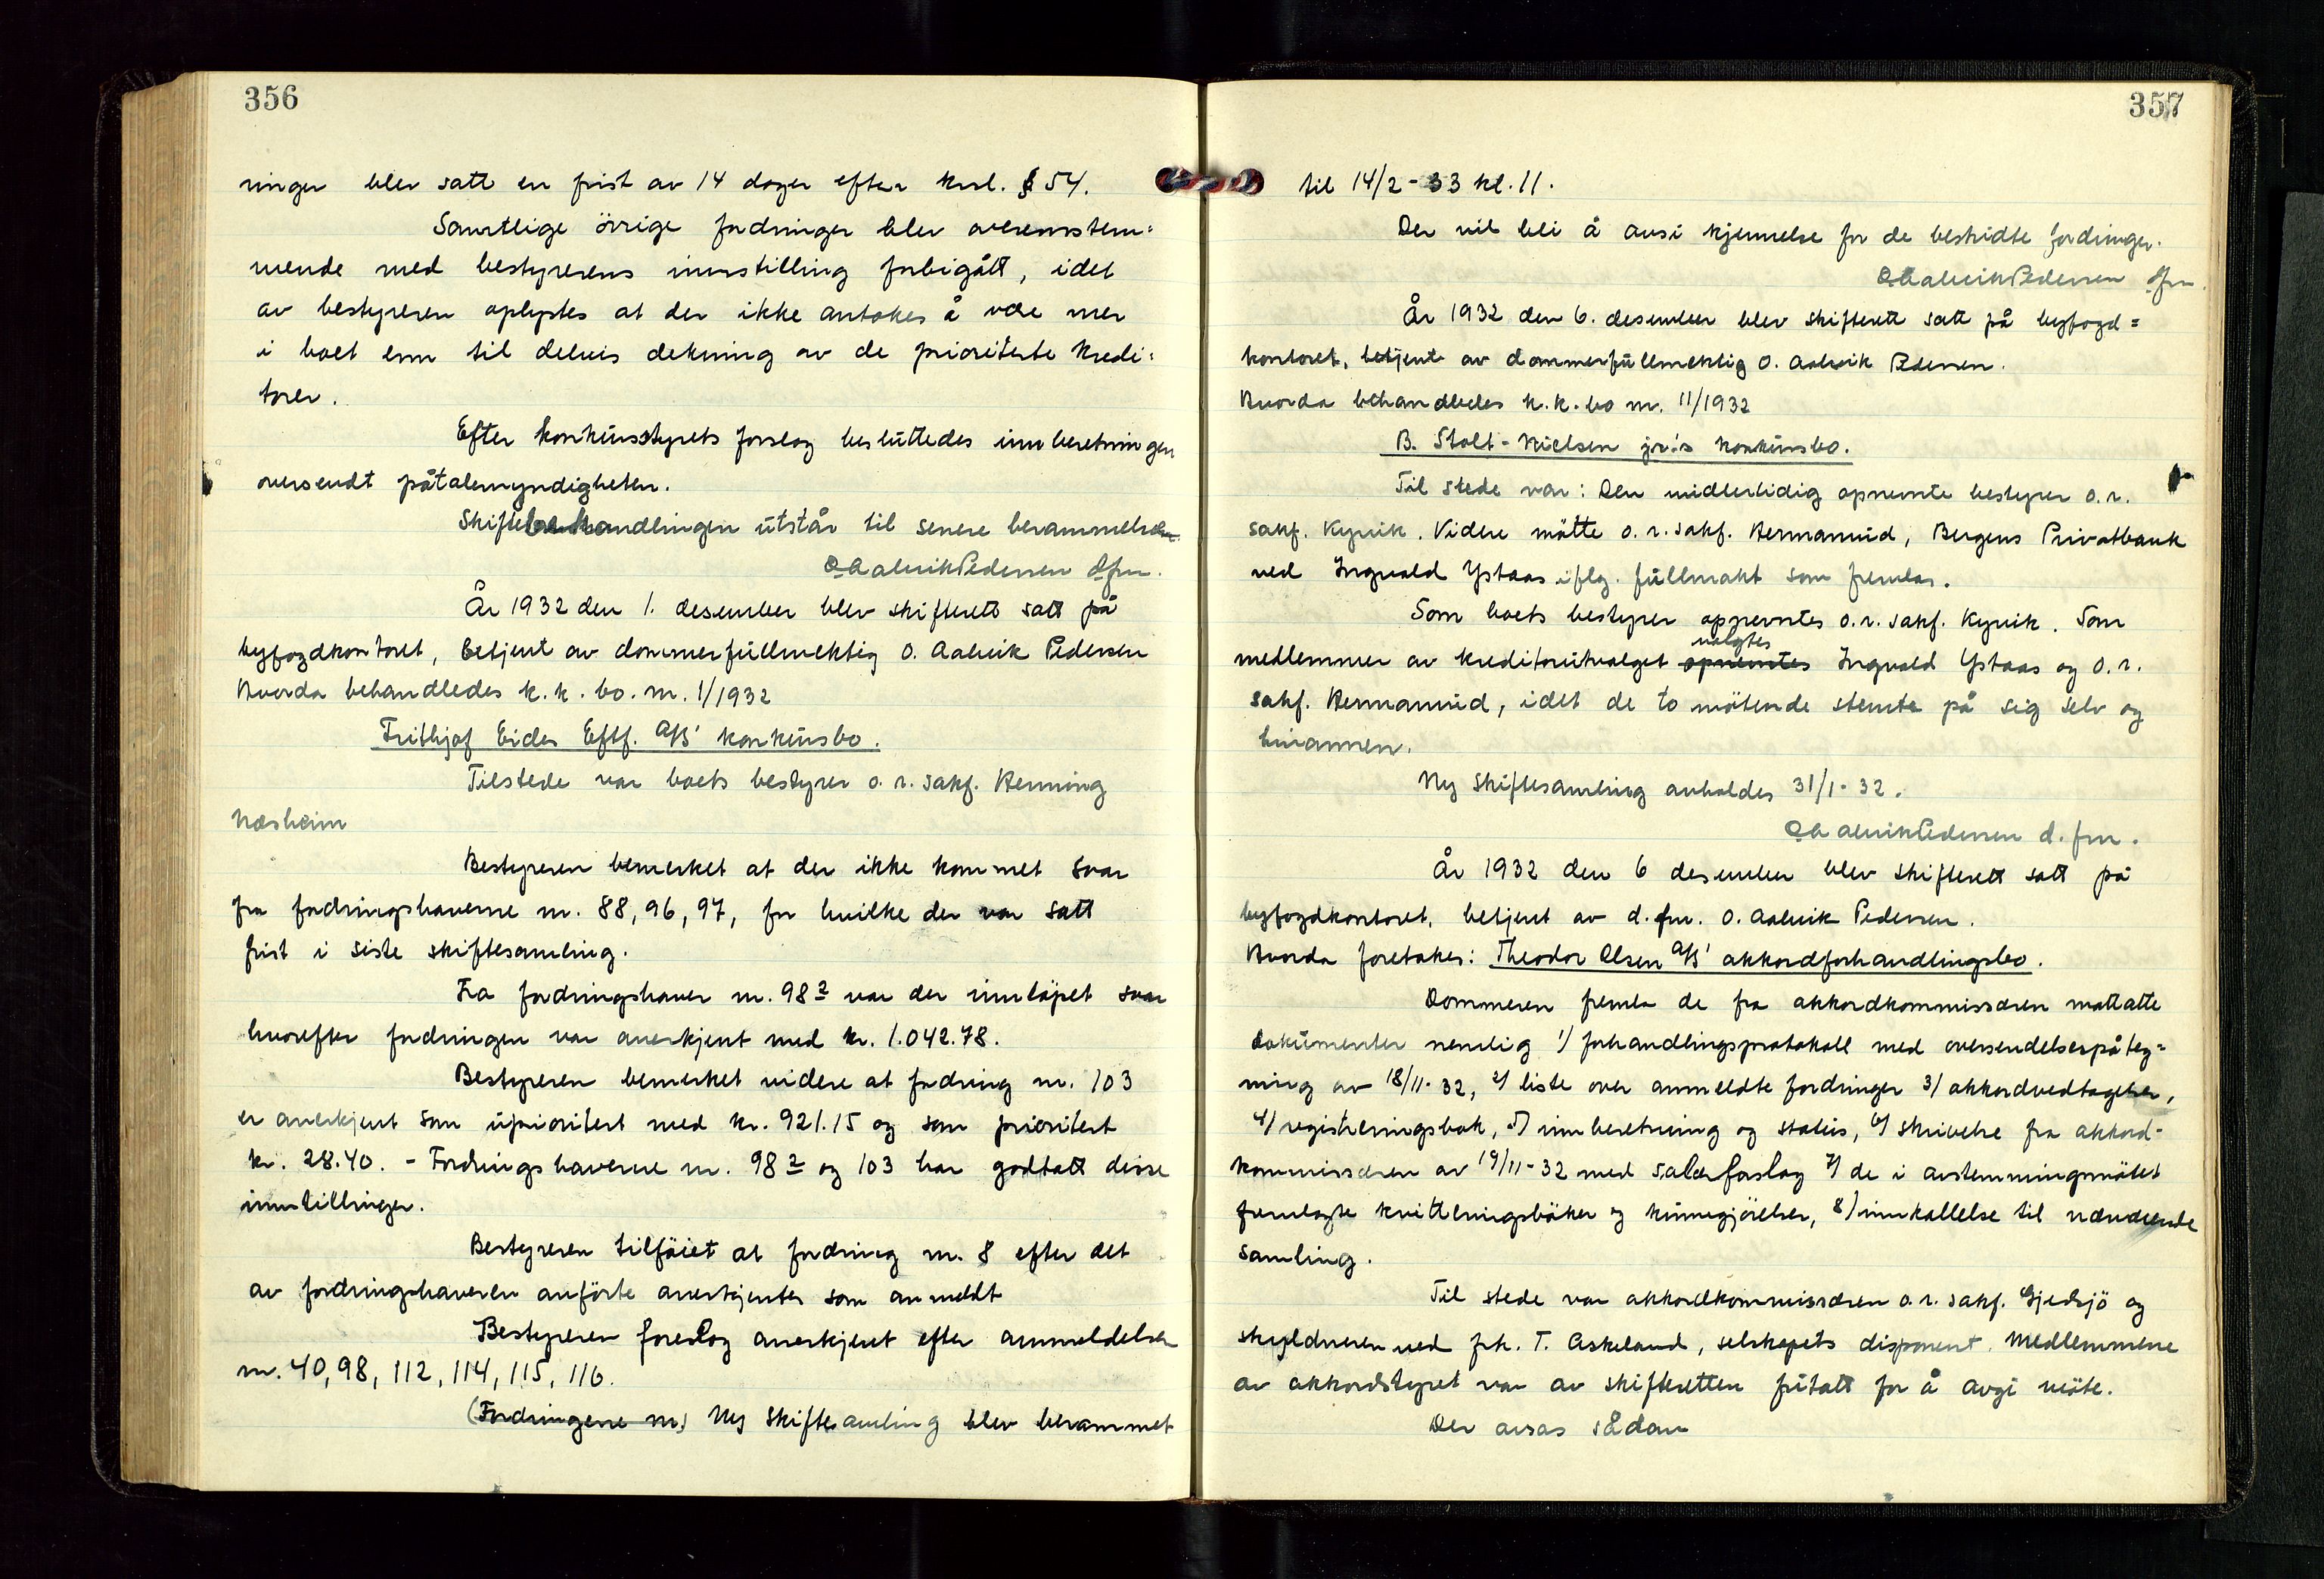 356
ringer blev satt en frist av 14 dager efter knsl. § 54.
Samtlige övrige fordringer blev overensstem=
mende med bestyrerens innstilling forbigått, idet
av bestyreren oplystes at der ikke antokes å være mer
i boet enn til delvis dekning av de prioriterte kredi=
torer.
Efter konkursstyrets forslag besluttedes innberetningen
oversendt påtalemyndigheten.
Skiftebehandlingen utstår til senere berammelse
O Aalvik Pedersen dfm.
År 1932 den 1. desember blev skifterett satt på
byfogdkontoret, betjent av dommerfullmektig O. Aalvik Pedersen
Hvorda behandledes k.k. bo. nr. 1/1932
Frithjof Eides Eftf. A/S' konkursbo.
Tilstede var boets bestyrer o.r.sakf. Henning
Næsheim
Bestyreren bemerket at der ikke kommet svar
fra fordringshaverne nr. 88, 96, 97, for hvilke der var satt
frist i siste skiftesamling.
Fra fordringshaver nr. 98² var der innløpet svar
hvorefter fordringen var anerkjent med kr. 1.042.78.
Bestyreren bemerket videre at fordring nr. 103
er anerkjent som uprioritert med kr. 921.15 og som prioritert
kr. 28.40. - Fordringshaverne nr. 98² og 103 har godtatt disse
innstillinger.
Bestyreren tilföiet at fordring nr. 8 efter det
av fordringshaveren anförte anerkjentes som anmeldt
Bestyreren foreslog anerkjent efter anmeldelsen
nr. 40, 98, 112, 114, 115, 116.
(Fordringene nr.) Ny skiftesamling blev berammet
357
til 14/2-33 kl. 11.
Der vil bli å avsi kjennelse for de bestridte fordringer.
O Aalvik Pedersen dfm.
År 1932 den 6. desember blev skifterett satt på byfogd=
kontoret, betjent av dommerfullmektig O. Aalvik Pedersen.
Hvorda behandledes k.k. bo nr. 11/1932
B. Stolt-Nielsen jr.'s konkursbo.
Til stede var: Den midlertidig opnevnte bestyrer o.r.
sakf. Kyvik. Videre mötte o.r.sakf. Hermanrud, Bergens Privatbank
ved Ingvald Ystaas iflg. fullmakt som fremlas.
Som boets bestyrer opnevntes o.r.sakf. Kyvik. Som
valgtes
medlemmer av kreditorutvalget opnevntes Ingvald Ystaas og o.r.
sakf. Hermanrud, idet de to mötende stemte på sig selv og
hinannen.
Ny skiftesamling avholdes 31/1-32.
O Aalvik Pedersen d.fm.
År 1932 den 6 desember blev skifterett satt på
byfogdkontoret, betjent av d.fm. O. Aalvik Pedersen.
Hvorda foretokes: Theodor Olsen A/S' akkordforhandlingsbo.
Dommeren fremla de fra akkordkommissæren mottatte
dokumenter nemlig 1) forhandlingsprotokoll med oversendelsespåteg=
ning av 18/11-32, 2) liste over anmeldte fordringer 3) akkordvedtagelser,
4) registreringsbok, 5) innberetning og status, 6) skrivelse fra akkord-
kommissæren av 19/11-32 med salærforslag 7) de i avstemmingsmötet
fremlagte kvitteringsböker og kunngjörelser, 8) innkallelse til nærværende
samling.
Til stede var akkordkommissæren o.r.sakf. Gjedsjö og
skyldneren ved frk. T. Askeland, selskapets disponent. Medlemmene
av akkordstyret var av skifteretten fritatt for å avgi möte.
Der avsas sådan